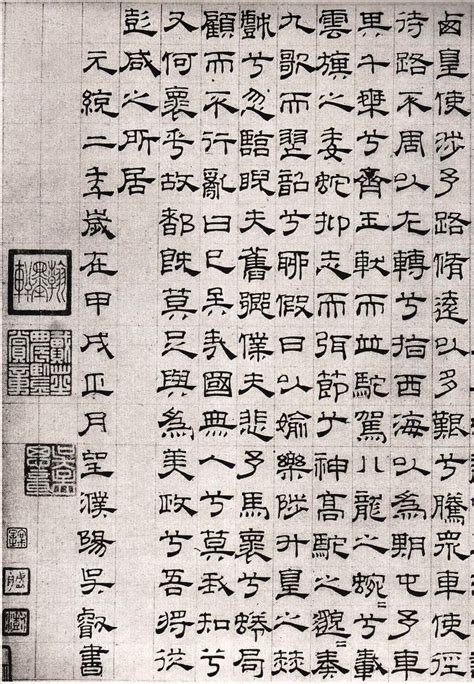 西皇使涉予路脩遠以多艱兮騰衆車使徑
待路不周以左轉兮指西海以為期屯予車
其千乘兮齊玉軑而並馳駕八龍之蜿=兮載
雲旗之委蛇抑志而弭節兮神高馳之邈=奏
九歌而舞韶兮聊假日以媮樂陟升皇之赫
戲兮忽臨睨夫舊鄉僕夫悲予馬懷兮蜷局
顧而不行亂曰已矣哉國無人兮莫我知兮
又何懷乎故都既莫足與為美政兮吾將從
彭咸之所居
元統二年歲在甲戌正月望濮陽吳叡書
翰墨軒